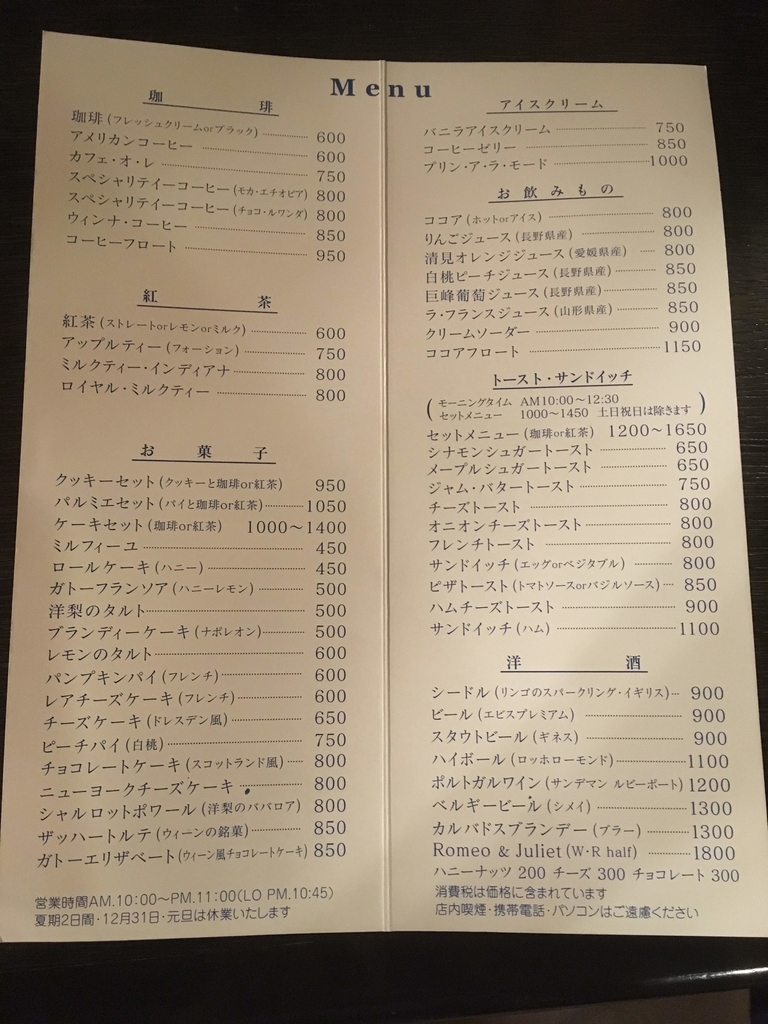 Menu
珈琲
珈琲(フレッシュクリームorブラック) 600
アメリカンコーヒー 600
カフェ・オ・レ 750
スペシャリティーコーヒー(モカ・エチオピア) 800
スペシャリティーコーヒー(チョコ・ルワンダ) 800
ウィンナ・コーヒー 850
コーヒーフロート 950
紅茶
紅茶(ストレートorレモンorミルク) 600
アップルティー(フォーション) 750
ミルクティー・インディアナ 800
ロイヤル・ミルクティー 800
お菓子
クッキーセット(クッキーと珈琲or紅茶) 950
パルミエセット(パイと珈琲or紅茶) 1050
ケーキセット(珈琲or紅茶) 1000〜1400
ミルフィーユ 450
ロールケーキ(ハニー) 450
ガトーフランソア(ハニーレモン) 500
洋梨のタルト 500
ブランディーケーキ(ナポレオン) 500
レモンのタルト 600
パンプキンパイ(フレンチ) 600
レアチーズケーキ(フレンチ) 600
チーズケーキ(ドレスデン風) 650
ピーチパイ(白桃) 750
チョコレートケーキ(スコットランド風) 800
ニューヨークチーズケーキ 800
シャルロットポワール(洋梨のババロア) 800
ザッハートルテ(ウィーンの銘菓) 850
ガトーエリザベート(ウィーン風チョコレートケーキ) 850
営業時間AM.10:00〜PM.11:00(LO PM.10:45)
夏期2日間・12月31日・元旦は休業いたします
アイスクリーム
バニラアイスクリーム 750
コーヒーゼリー 850
プリン・ア・ラ・モード 1000
お飲みもの
ココア(ホットorアイス) 800
りんごジュース(長野県産) 800
清見オレンジジュース(愛媛県産) 800
白桃ピーチジュース(長野県産) 850
巨峰葡萄ジュース(長野県産) 850
ラ・フランスジュース(山形県産) 850
クリームソーダー 900
ココアフロート 1150
トースト・サンドイッチ
(モーニングタイム AM10:00〜12:30
セットメニュー 1000〜1450 土日祝日は除きます)
セットメニュー(珈琲or紅茶) 1200〜1650
シナモンシュガートースト 650
メープルシュガートースト 650
ジャム・バタートースト 750
チーズトースト 800
オニオンチーズトースト 800
フレンチトースト 800
サンドイッチ(エッグorベジタブル) 800
ピザトースト(トマトソースorバジルソース) 850
ハムチーズトースト 900
サンドイッチ(ハム) 1100
洋酒
シードル(リンゴのスパークリング・イギリス) 900
ビール(エビスプレミアム) 900
スタウトビール(ギネス) 900
ハイボール(ロッホローモンド) 1100
ポルトガルワイン(サンデマン ルビーポート) 1200
ベルギービール(シメイ) 1300
カルバドスブランデー(ブラー) 1300
Romeo & Juliet(W・R half) 1800
ハニーナッツ 200 チーズ 300 チョコレート 300
消費税は価格に含まれています
店内喫煙・携帯電話・パソコンはご遠慮ください